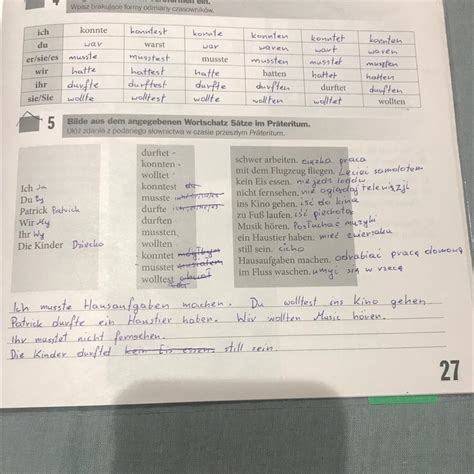 4
Wpisz brakujące formy odmiany czasowników.
ich konnte konntest konnte konnten konntet konnten
du war warst war waren wart waren
er/sie/es musste musstest musste mussten musstet mussten
wir hatte hattest hatte hatten hattet hatten
ihr durfte durftest durfte durften durftet durften
sie/Sie wollte wolltest wollte wollten wolltet wollten
5 Bilde aus dem angegebenen Wortschatz Sätze im Präteritum.
Ułóż zdania z podanego słownictwa w czasie przeszłym Präteritum.
Ich Ja
Du Ty
Patrick Patrick
Wir My
Ihr Wy
Die Kinder Dziecko
durftet
konnten
wolltet
konntest
musste
durfte
durften
mussten
wollten
konntet
musstet
wolltest
schwer arbeiten. ciężka praca
mit dem Flugzeug fliegen. Lecieć samolotem
kein Eis essen. nie jeść lodów
nicht fernsehen. nie oglądaj telewizji
ins Kino gehen. iść do kina
zu Fuß laufen. iść piechotą
Musik hören. Posłuchać muzyki
ein Haustier haben. mieć zwierzaka
still sein. cicho
Hausaufgaben machen. odrabiać pracę domową
im Fluss waschen. umyj się w rzece
Ich musste Hausaufgaben machen. Du wolltest ins Kino gehen
Patrick durfte ein Haustier haben. Wir wollten Music hören.
Ihr musstet nicht fernsehen.
Die Kinder durftet kein Eis essen. still sein.
27